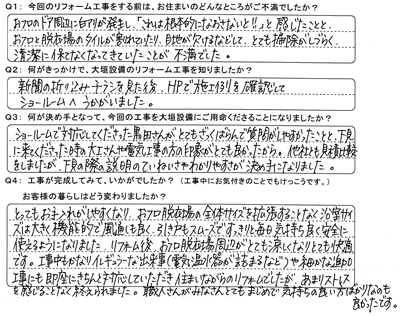 Q1：今回のリフォーム工事をする前は、お住まいのどんなところがご不満でしたか？
お風呂のドア周辺に白アリが発生し、「これは根本的になおさないと!!」と感じたこと、
お風呂と脱衣場のタイルが割れたり、目地が欠けるなどして、とても掃除がしづらく
清潔に保てなくなってきていたことが不満でした。
Q2：何がきっかけで、大垣設備のリフォーム工事を知りましたか？
新聞の折り込みチラシを見た後、HPで施工例を確認して
ショールームへうかがいました。
Q3：何が決め手となって、今回の工事を大垣設備にご用命くださることになりましたか？
ショールームで対応してくださった島田さんがとてもきさくばらんで質問がしやすかったこと、下見
に来てくださった時の大工さんや電気工事の方の印象がとても良かったから。他社とも見積比較
をしましたが、下見の際の説明のていねいさとわかりやすさが決め手になりました。
Q4：工事が完成してみて、いかがでしたか？（工事中にお気付きのことでもけっこうです。）
お客様の暮らしはどう変わりましたか？
とってもお手入れがしやすくなり、お風呂脱衣場の全体サイズを拡張することなく浴室サイ
ズは大きく機能的で風通しも良く、引き戸もスムーズですっきりと毎日気持ち良く安全に
使えるようになりました。リフォーム後、お風呂脱衣場周辺がとても涼しくなりとても快適
です。工事中もかなりイレギュラーな出来事（電気温水器が詰まるなど）や細かな追加
工事にも即座にきちんと対応していただき住まいながらのリフォームでしたが、あまりストレス
を感じることなく終えられました。職人さんがみなさんとてもまじめで気持ちの良い方ばかりなのも
良かったです。